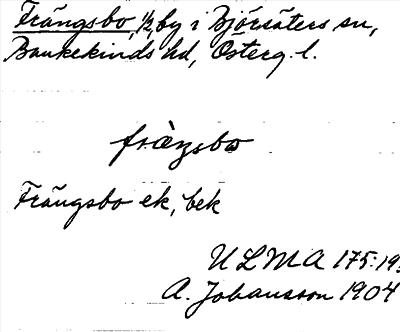 Frängsbo, 1/2, by i Björsäters sn,
Bankekinds hd, Österg. l.
fràŋsbo
Frängsbo ek, bek
ULMA 175:19
A. Johansson 1904